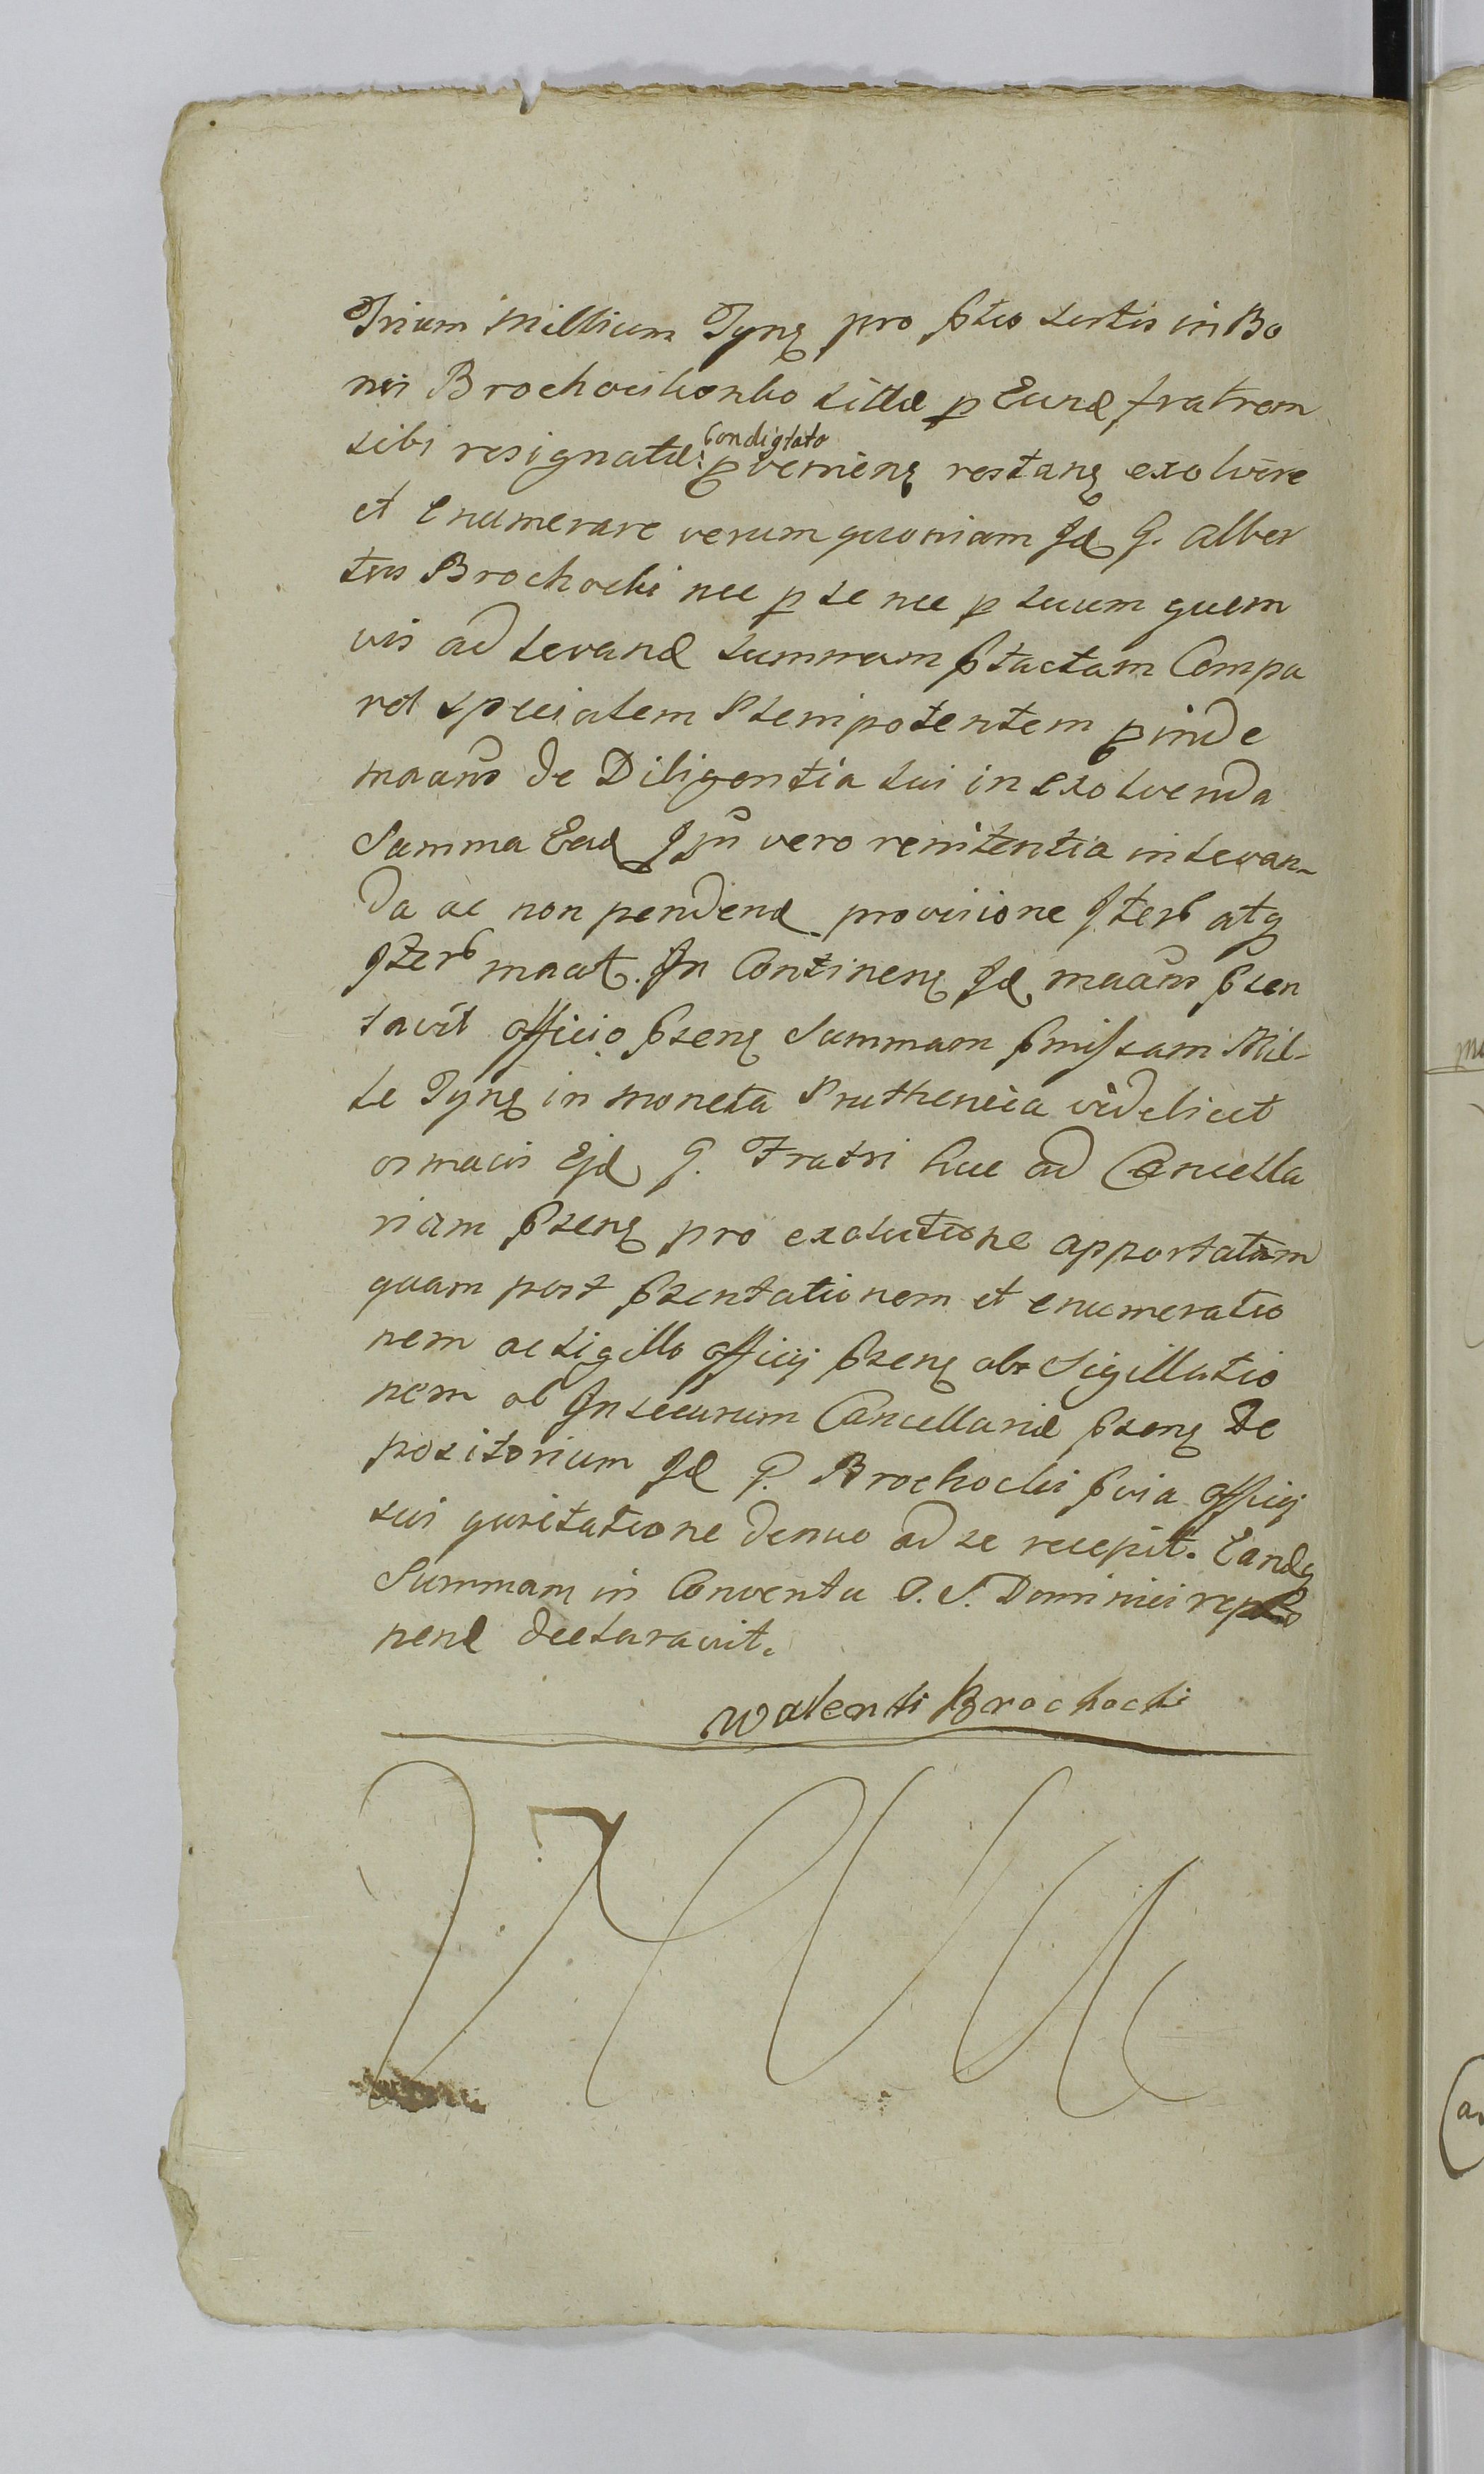 Trium Millium Tynę pro ptio sortis in Bo
nis Brochociconbo sittæ p Eund fratrem
sibi resignatæ: Condigtato pvenienę restanę exolvere
et enumerare verum quoniam Jd G. Alber
tus Brochocki nec p se nec p suum quem
vis ad levand summam ptactam Compa
ret specialem Plenipotentem pinde
maāns de Diligentia sui in exolvenda
Summa Ead vero renitentia in levan-
da ac non pendend provisione atq
maāt. In Continenę Jd maāns psen
tavit officio psenę Summam pmissam Mil-
le Tynę in moneta Pruthenica videlicet
Ejd G. Fratri huc ad Cancella
riam psenę pro exolutione apportatam
quam post psentationem et enumeratio
nem ac sigillo officij psenę ob Sigillatio
nem ob Insecurum Cancellariæ psenę De
positorium Jd G. Brochocki pvia officij
sui quietatione denuo ad se recepit. Eandę
Summam in Conventu O. S. Dominici repo
nend declaravit.
Walenti Brochocki